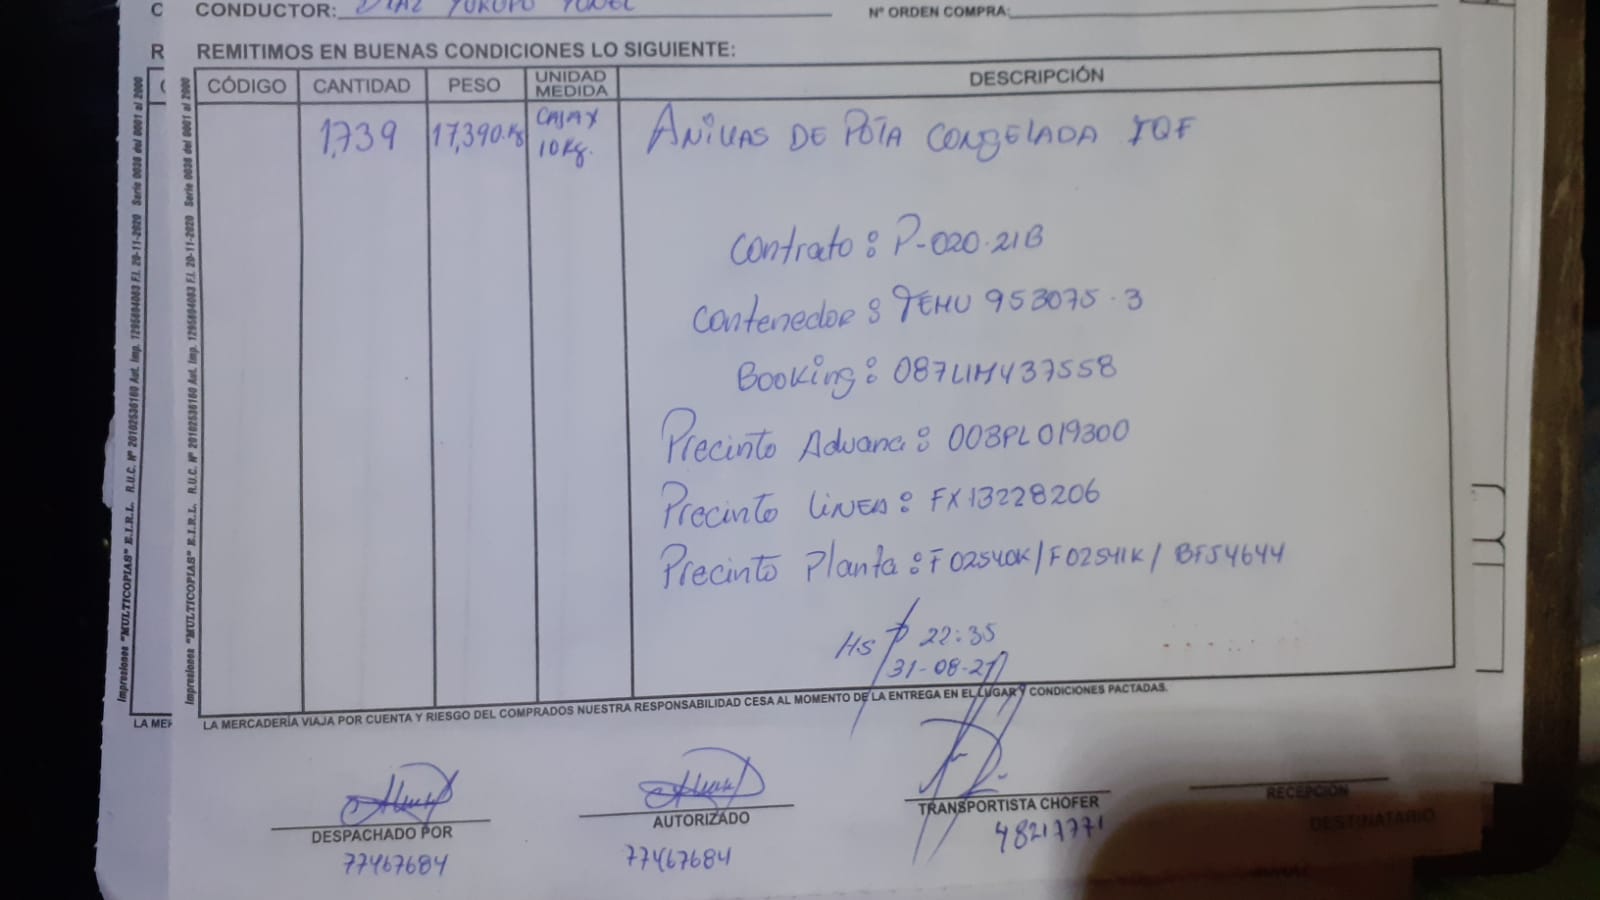 CONDUCTOR: DIAZ YUROPO YONEL
Nº ORDEN COMPRA:
REMITIMOS EN BUENAS CONDICIONES LO SIGUIENTE:
CÓDIGO CANTIDAD PESO UNIDAD MEDIDA DESCRIPCIÓN
1,739 17,390.Kg CAJA X 10 Kg. ANILLAS DE POTA CONGELADA IQF
Contrato: P-020-21B
Contenedor: TEMU 953075-3
Booking: 087LIM437558
Precinto Aduana: 003PL019300
Precinto LINEA: FX13228206
Precinto Planta: F02540K/F02541K/BFS4644
HS 22:35
31-08-21
LA MERCADERÍA VIAJA POR CUENTA Y RIESGO DEL COMPRADOS NUESTRA RESPONSABILIDAD CESA AL MOMENTO DE LA ENTREGA EN EL LUGAR Y CONDICIONES PACTADAS.
DESPACHADO POR
77467684
AUTORIZADO
77467684
TRANSPORTISTA CHOFER
48217771
RECEPCIÓN
DESTINATARIO
Impresiones "MULTICOPIAS" E.I.R.L. R.U.C. Nº 20102536160 Aut. Imp. 1295604083 F.I. 20-11-2020 Serie 0036 del 0001 al 2000
Impresiones "MULTICOPIAS" E.I.R.L. R.U.C. Nº 20102536160 Aut. Imp. 1295604083 F.I. 20-11-2020 Serie 0036 del 0001 al 2000
LA MER